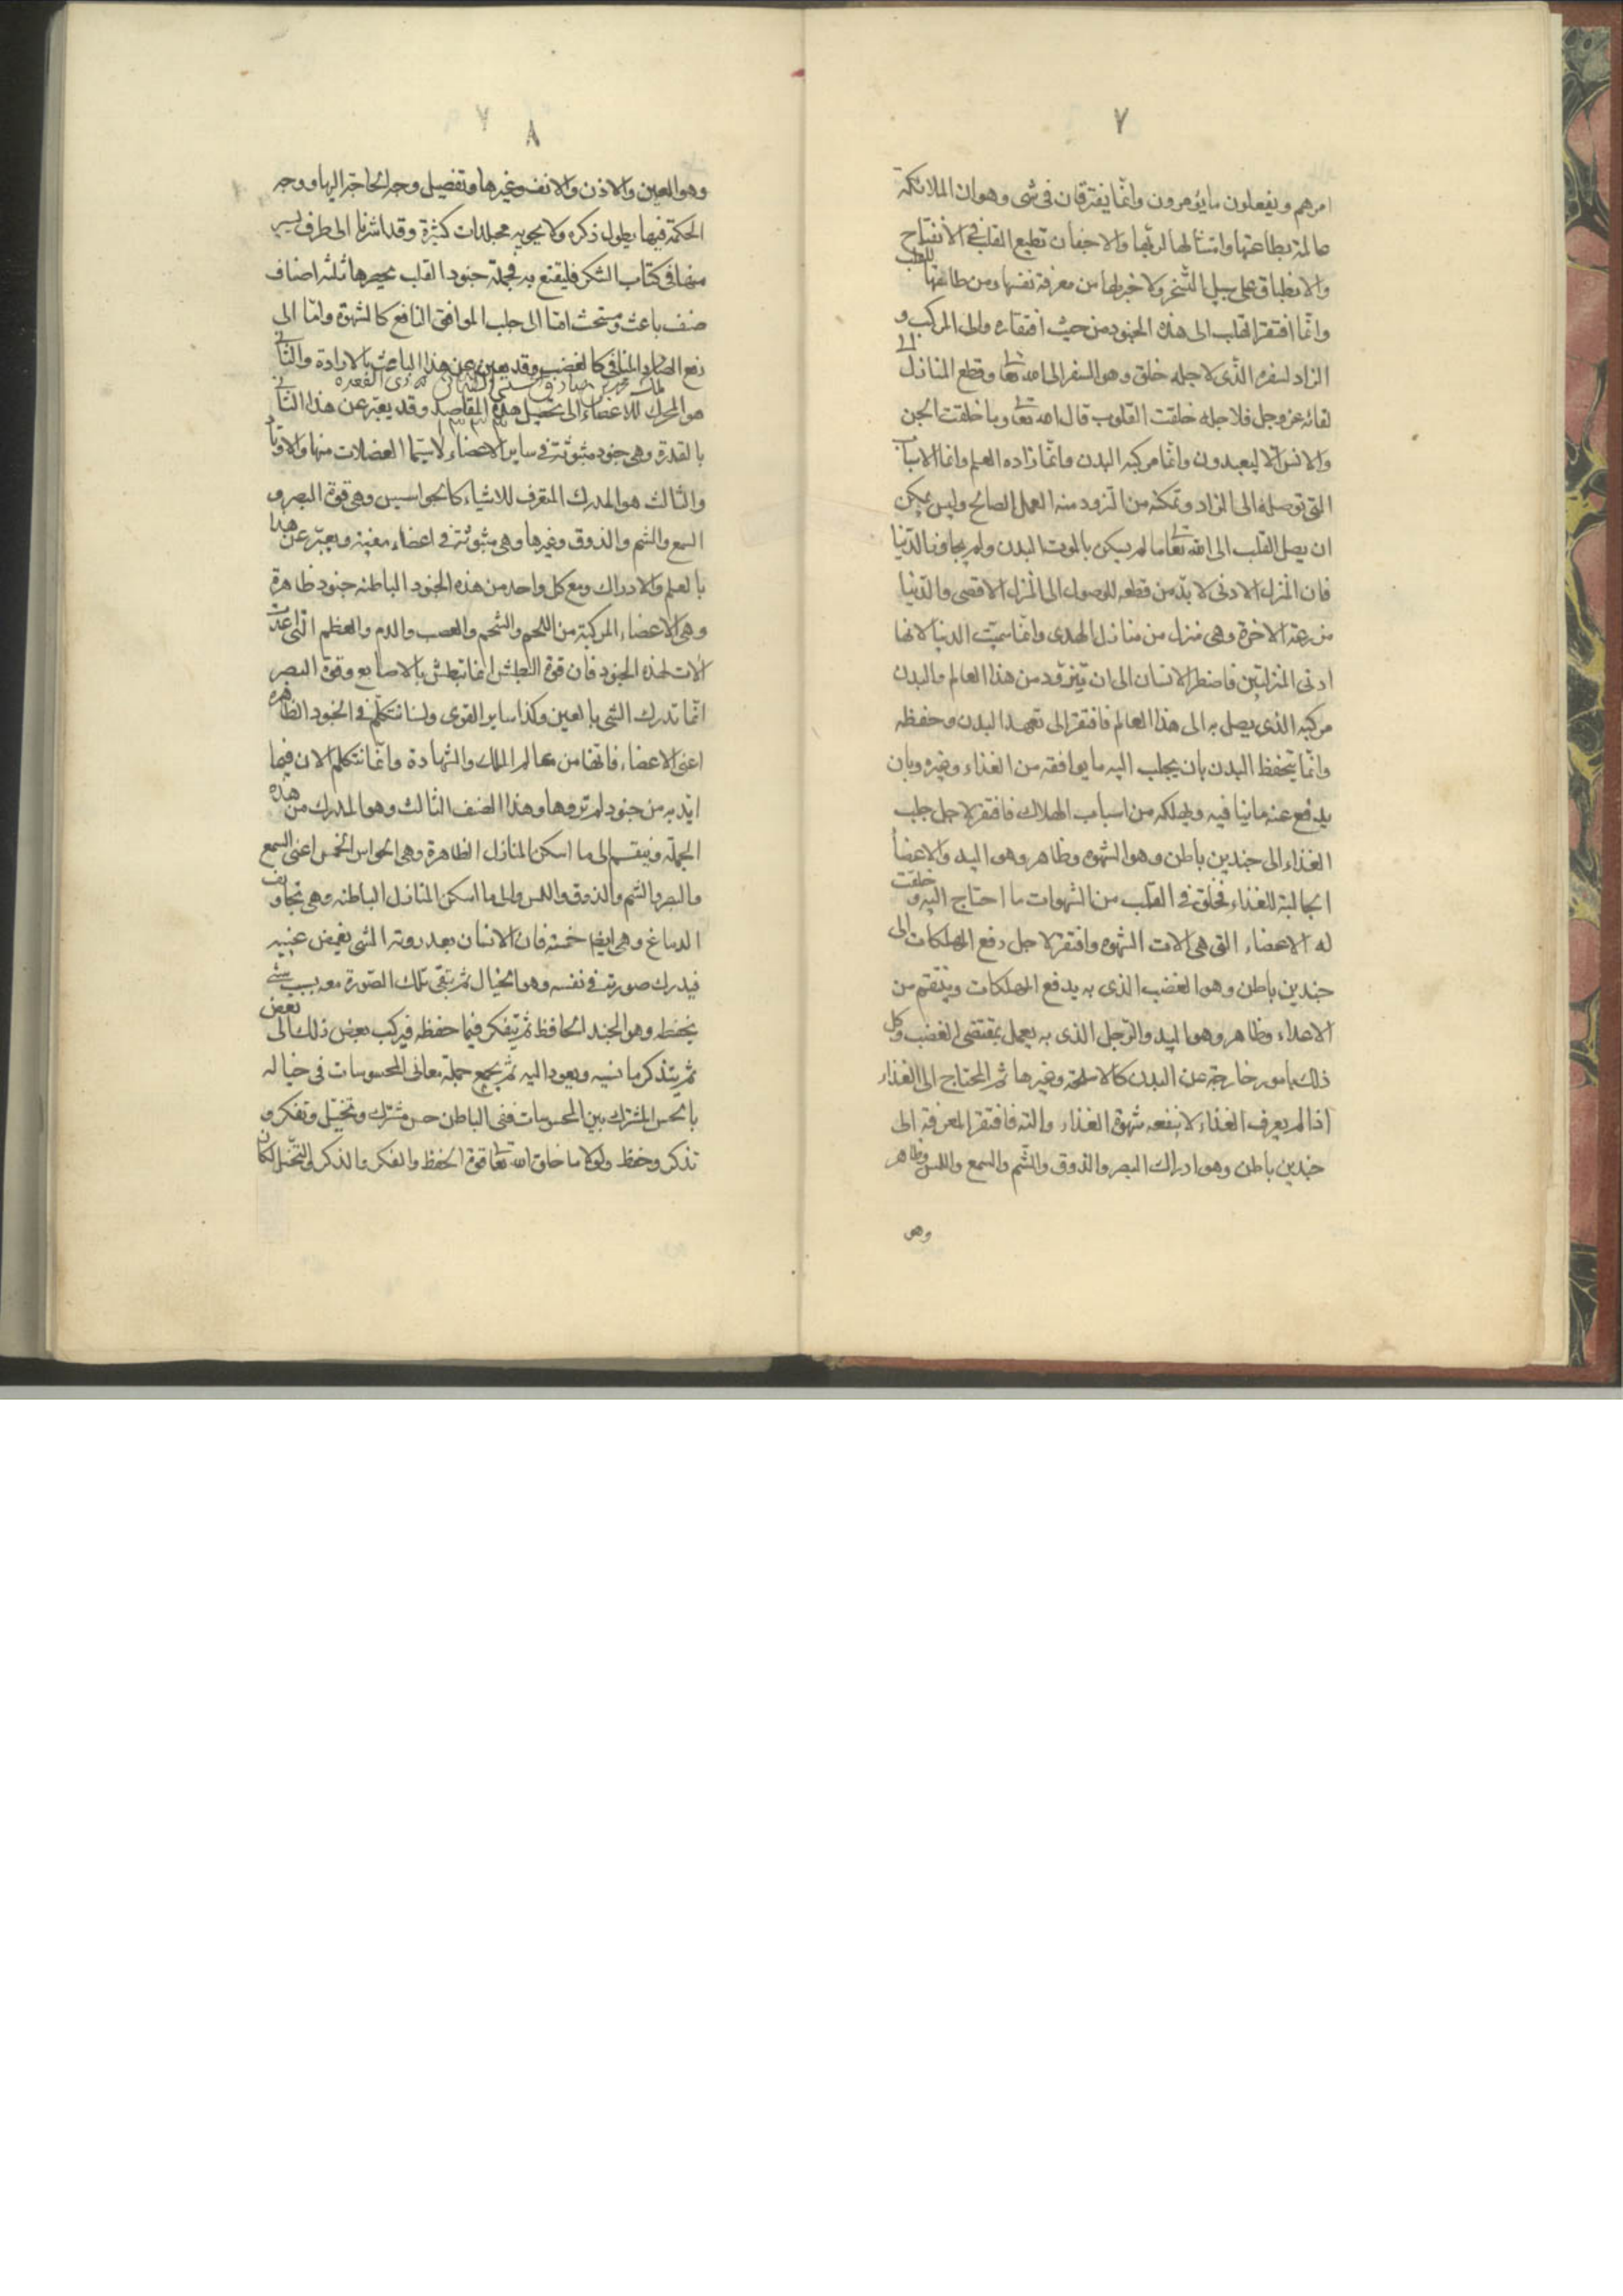 ٧
امرهم ويفعلون ما يؤمرون وانما يفترقان فى شى وهو ان الملائكة
عالمة بطاعتها وامتثالها لربها والاجفان تطيع القلب فى الانفتاح
والانطباق على سبيل التسخر ولا خبر لها من معرفة نفسها ومن طاعتها للقلب
وانما افتقر القلب الى هذه الجنود من حيث افتقاره الى المركب و
الزاد لسفره الذى لاجله خلق وهو السفر الى الله تعا وقطع المنازل الى
لقائه عز وجل فلاجله خلقت القلوب قال الله تعا وما خلقت الجن
والانس الا ليعبدون وانما مركبه البدن وانما زاده العلم وانما الاسباب
التى توصله الى الزاد وتمكنه من التزود منه العمل الصالح وليس يمكن
ان يصل القلب الى الله تعا ما لم يسكن بالموت البدن ولم يجاوز الدنيا
فان المنزل الادنى لا بد من قطعه للوصول الى المنزل الاقصى والدنيا
مزرعة الاخرة وهى منزل من منازل الهدى وانما سميت الدنيا لانها
ادنى المنزلتين فاضطر الانسان الى ان يتزود من هذا العالم والبدن
مركبه الذى يصل به الى هذا العالم فافتقر الى تعهد البدن وحفظه
وانما يتحفظ البدن بان يجلب اليه ما يوافقه من الغذاء وغيره وبان
يدفع عنه ما ينافيه ويهلكه من اسباب الهلاك فافتقر لاجل جلب
الغذاء الى جندين باطن وهو الشهوه وظاهر وهو اليد والاعضأ
الجالبة للغذاء فخلق فى القلب من الشهوات ما احتاج اليه و خلقت
له الاعضاء التى هى الات الشهوه وافتقر لاجل دفع المهلكات الى
جندين باطن وهو الغضب الذى به يدفع المهلكات وينتقم من
الاعداء وظاهر وهو اليد والرجل الذى به يعمل بمقتضى الغضب وكل
ذلك بامور خارجة عن البدن كالاسلحة وغيرها ثم المحتاج الى الغذاء
اذا لم يعرف الغذاء لا ينفعه شهوة الغذاء والته فافتقر للمعرفة الى
جندين باطن وهو ادراك البصر والذوق والشم والسمع واللمس وظاهر
وهو
٨
وهو العين والاذن والانف وغيرها وتفصيل وجه الحاجة اليها ووجه
الحكمة فيها يطول ذكره ولا يحويه مجلدات كثيرة وقد اشرنا الى طرف يسير
منها فى كتاب الشكر فليقنع به فجملة جنود القلب يحصرها ثلثة اصناف
صنف باعث ومستحث اما الى جلب الموافق النافع كالشهوة واما الى
دفع الضار المنافى كالغضب وقد يعبر عن هذا الباعث بالارادة والثانى
هو المحرك للاعضاء الى تحصيل هذه المقاصد وقد يعبر عن هذا الثانى
بالقدرة وهى جنود مبثوثة فى ساير الاعضاء لا سيما العضلات منها والاوتار
والثالث هو المدرك المتعرف للاشياء كالجواسيس وهى قوة البصر و
السمع والشم والذوق وغيرها وهى مبثوثة فى اعضاء معينة ويعبر عن هذا
بالعلم والادراك ومع كل واحد من هذه الجنود الباطنه جنود ظاهرة
وهى الاعضاء المركبة من اللحم والشحم والعصب والدم والعظم التى اعدت
الات لهذه الجنود فان قوة البطش انما تبطش بالاصابع وقوة البصر
انما تدرك الشى بالعين وكذا ساير القوى ولسنا نتكلم فى الجنود الظاهره
اعنى الاعضاء فانها من عالم الملك والشهادة وانما نتكلم الان فيما
ايد به من جنود لم تروها وهذا الصنف الثالث وهو المدرك من هذه
الجملة وينقسم الى ما اسكن المنازل الظاهرة وهى الحواس الخمس اعنى السمع
والبصر والشم والذوق واللمس والى ما اسكن المنازل الباطنه وهى تجاويف
الدماغ وهى ايضا خمسة فان الانسان بعد روية الشى يغمض عينيه
فيدرك صورته فى نفسه وهو الخيال ثم يبقى تلك الصورة معه بسبب شئ
يحفظه وهو الجند الحافظ ثم يتفكر فيما حفظه فيركب بعض ذلك الى بعض
ثم يتذكر ما نسيه ويعود اليه ثم يجمع جملة معانى المحسوسات فى خياله
بالحس المشترك بين المحسوسات ففى الباطن حس مشترك وتخيل وتفكر و
تذكر وحفظ ولولا ما خلق الله تعا قوة الحفظ والفكر والذكر والتخيل لكان